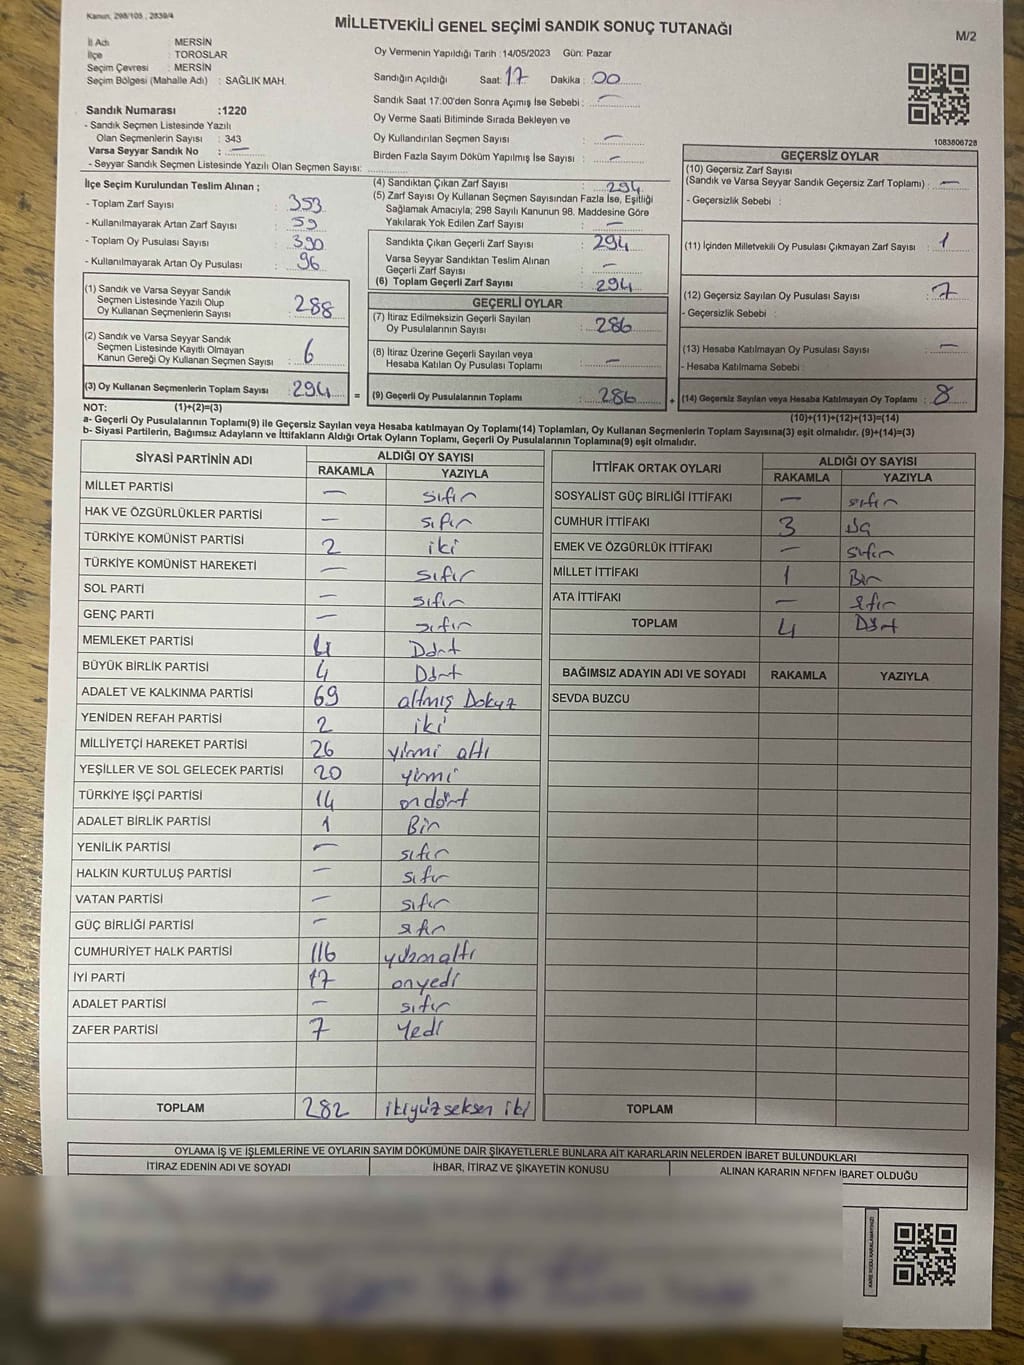 Kanun, 298/105 , 2839/4
MİLLETVEKİLİ GENEL SEÇİMİ SANDIK SONUÇ TUTANAĞI
M/2
İl Adı : MERSİN
İlçe : TOROSLAR
Seçim Çevresi : MERSİN
Seçim Bölgesi (Mahalle Adı) : SAĞLIK MAH.
Sandık Numarası :1220
- Sandık Seçmen Listesinde Yazılı
Olan Seçmenlerin Sayısı : 343
Varsa Seyyar Sandık No : —
- Seyyar Sandık Seçmen Listesinde Yazılı Olan Seçmen Sayısı:
Oy Vermenin Yapıldığı Tarih :14/05/2023 Gün: Pazar
Sandığın Açıldığı Saat: 17 Dakika : 00
Sandık Saat 17:00'den Sonra Açımış İse Sebebi : —
Oy Verme Saati Bitiminde Sırada Bekleyen ve
Oy Kullandırılan Seçmen Sayısı : —
Birden Fazla Sayım Döküm Yapılmış İse Sayısı : —
1083806728
İlçe Seçim Kurulundan Teslim Alınan ;
- Toplam Zarf Sayısı : 353
- Kullanılmayarak Artan Zarf Sayısı : 59
- Toplam Oy Pusulası Sayısı : 390
- Kullanılmayarak Artan Oy Pusulası : 96
(1) Sandık ve Varsa Seyyar Sandık
Seçmen Listesinde Yazılı Olup
Oy Kullanan Seçmenlerin Sayısı : 288
(2) Sandık ve Varsa Seyyar Sandık
Seçmen Listesinde Kayıtlı Olmayan
Kanun Gereği Oy Kullanan Seçmen Sayısı : 6
(3) Oy Kullanan Seçmenlerin Toplam Sayısı : 294 =
(4) Sandıktan Çıkan Zarf Sayısı : 294
(5) Zarf Sayısı Oy Kullanan Seçmen Sayısından Fazla İse, Eşitliği
Sağlamak Amacıyla; 298 Sayılı Kanunun 98. Maddesine Göre
Yakılarak Yok Edilen Zarf Sayısı : —
Sandıkta Çıkan Geçerli Zarf Sayısı : 294
Varsa Seyyar Sandıktan Teslim Alınan
Geçerli Zarf Sayısı : —
(6) Toplam Geçerli Zarf Sayısı : 294
GEÇERLİ OYLAR
(7) İtiraz Edilmeksizin Geçerli Sayılan
Oy Pusulalarının Sayısı : 286
(8) İtiraz Üzerine Geçerli Sayılan veya
Hesaba Katılan Oy Pusulası Toplamı : —
(9) Geçerli Oy Pusulalarının Toplamı : 286 +
GEÇERSİZ OYLAR
(10) Geçersiz Zarf Sayısı
(Sandık ve Varsa Seyyar Sandık Geçersiz Zarf Toplamı) : —
- Geçersizlik Sebebi :
(11) İçinden Milletvekili Oy Pusulası Çıkmayan Zarf Sayısı : 1
(12) Geçersiz Sayılan Oy Pusulası Sayısı : 7
- Geçersizlik Sebebi :
(13) Hesaba Katılmayan Oy Pusulası Sayısı : —
- Hesaba Katılmama Sebebi :
(14) Geçersiz Sayılan veya Hesaba Katılmayan Oy Toplamı : 8
NOT: (1)+(2)=(3) (10)+(11)+(12)+(13)=(14)
a- Geçerli Oy Pusulalarının Toplamı(9) ile Geçersiz Sayılan veya Hesaba katılmayan Oy Toplamı(14) Toplamları, Oy Kullanan Seçmenlerin Toplam Sayısına(3) eşit olmalıdır. (9)+(14)=(3)
b- Siyasi Partilerin, Bağımsız Adayların ve İttifakların Aldığı Ortak Oyların Toplamı, Geçerli Oy Pusulalarının Toplamına(9) eşit olmalıdır.
SİYASİ PARTİNİN ADI ALDIĞI OY SAYISI
RAKAMLA YAZIYLA
MİLLET PARTİSİ — sıfır
HAK VE ÖZGÜRLÜKLER PARTİSİ — sıfır
TÜRKİYE KOMÜNİST PARTİSİ 2 iki
TÜRKİYE KOMÜNİST HAREKETİ — sıfır
SOL PARTİ — sıfır
GENÇ PARTİ — sıfır
MEMLEKET PARTİSİ 4 Dört
BÜYÜK BİRLİK PARTİSİ 4 Dört
ADALET VE KALKINMA PARTİSİ 69 altmış Dokuz
YENİDEN REFAH PARTİSİ 2 iki
MİLLİYETÇİ HAREKET PARTİSİ 26 yirmi altı
YEŞİLLER VE SOL GELECEK PARTİSİ 20 yirmi
TÜRKİYE İŞÇİ PARTİSİ 14 ondört
ADALET BİRLİK PARTİSİ 1 Bir
YENİLİK PARTİSİ — sıfır
HALKIN KURTULUŞ PARTİSİ — sıfır
VATAN PARTİSİ — sıfır
GÜÇ BİRLİĞİ PARTİSİ — sıfır
CUMHURİYET HALK PARTİSİ 116
İYİ PARTİ 17 onyedi
ADALET PARTİSİ — sıfır
ZAFER PARTİSİ 7 Yedi
TOPLAM 282 ikiyüz seksen iki
İTTİFAK ORTAK OYLARI ALDIĞI OY SAYISI
RAKAMLA YAZIYLA
SOSYALİST GÜÇ BİRLİĞİ İTTİFAKI — sıfır
CUMHUR İTTİFAKI 3 Üç
EMEK VE ÖZGÜRLÜK İTTİFAKI — sıfır
MİLLET İTTİFAKI 1 Bir
ATA İTTİFAKI — sıfır
TOPLAM 4 Dört
BAĞIMSIZ ADAYIN ADI VE SOYADI RAKAMLA YAZIYLA
SEVDA BUZCU
TOPLAM
OYLAMA İŞ VE İŞLEMLERİNE VE OYLARIN SAYIM DÖKÜMÜNE DAİR ŞİKAYETLERLE BUNLARA AİT KARARLARIN NELERDEN İBARET BULUNDUKLARI
İTİRAZ EDENİN ADI VE SOYADI İHBAR, İTİRAZ VE ŞİKAYETİN KONUSU ALINAN KARARIN NEDEN İBARET OLDUĞU